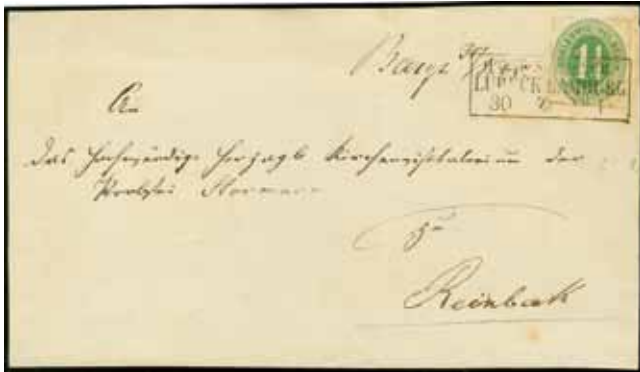 1¼
LÜBECK HAMBURG
30
An
das Hochwürdige Herzogl. Kirchenvisitatorium der
Probstei Stormarn
zu
Reinbeck